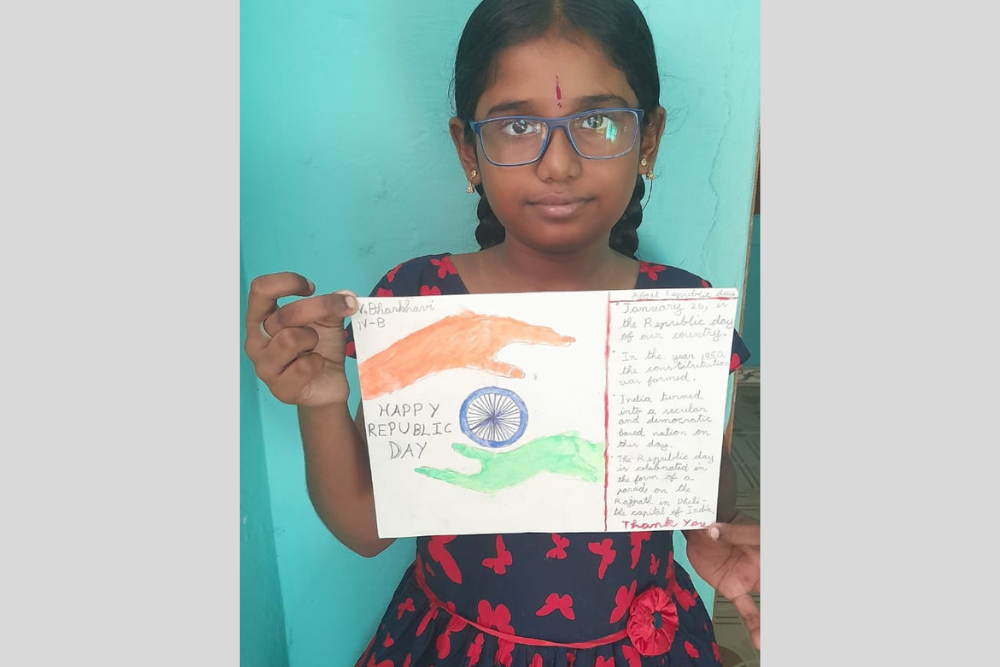 V. Bharkhavi
IV-B
HAPPY
REPUBLIC
DAY
About Republic day
• January 26, is
the Republic day
of our country.
• In the year 1950,
the constitution
was formed.
• India turned
into a secular
and democratic
based nation on
this day.
• The Republic day
is celebrated in
the form of a
parade on the
Rajpath in Dheli-
the capital of India.
Thank You